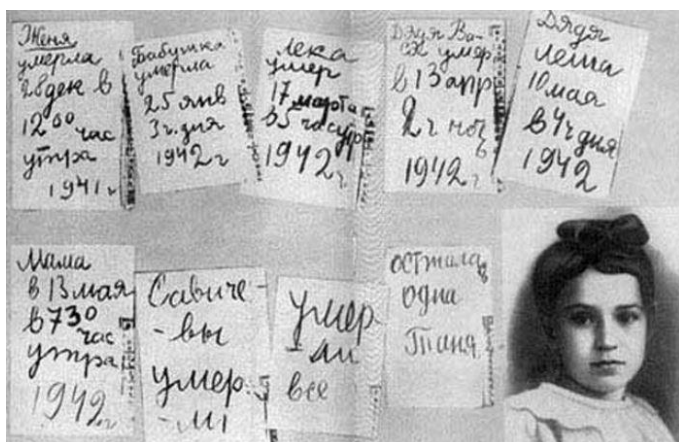 Женя
умерла
28 дек в
12 00 час
утра
1941 г
Бабушка
умерла
25 янв
3 ч. дня
1942 г
Лека
умер
17 марта
в 5 час утр
1942 г.
Дядя Ва-
ся умер
в 13 апр
2 ч ноч
ь
1942 г
Дядя
Леша
10 мая
в 4 ч дня
1942
Мама
в 13 мая
в 7 30
час
утра
1942 г
Савиче-
-вы
умер-
-ли
умер
-ли
все
осталась
одна
Таня